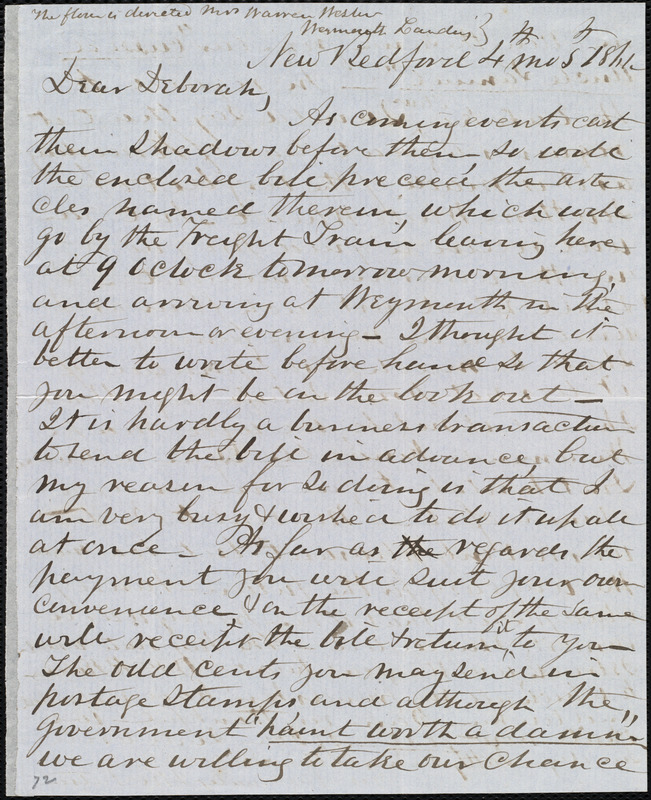 The flour is directed Mrs Warren Weston
Weymouth Landing}
New Bedford 4th mo 5th 1861
Dear Deborah,
As coming events cast
their shadows before them, so will
the enclosed bill preceed the arti
cles named therein, which will
go by the Freight Train leaving here
at 9 Oclock tomorrow morning,
and arriving at Weymouth in the
afternoon or evening - I thought it
better to write before hand so that
you might be on the look out -
It is hardly a business transaction
to send the bill in advance, but
my reason for so doing is that I
am very busy & wished to do it up all
at once - As far as the regards the
payment you will suit your own
convenience & on the receipt of the same
will receipt the bill & return it to you -
The odd cents you may send in
postage stamps and although the
Government "haint worth a damn"
we are willing to take our chance
72